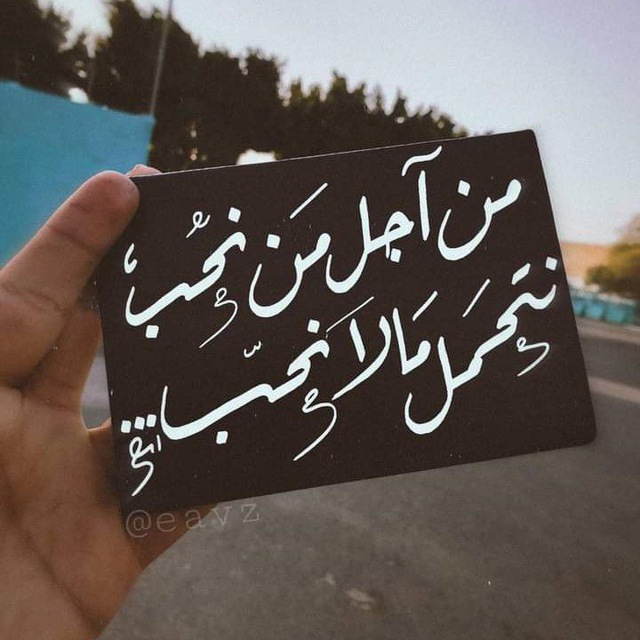 من آجل مَن نحُب،
نتحَمل مَالاَ نحبّ...
@eavz